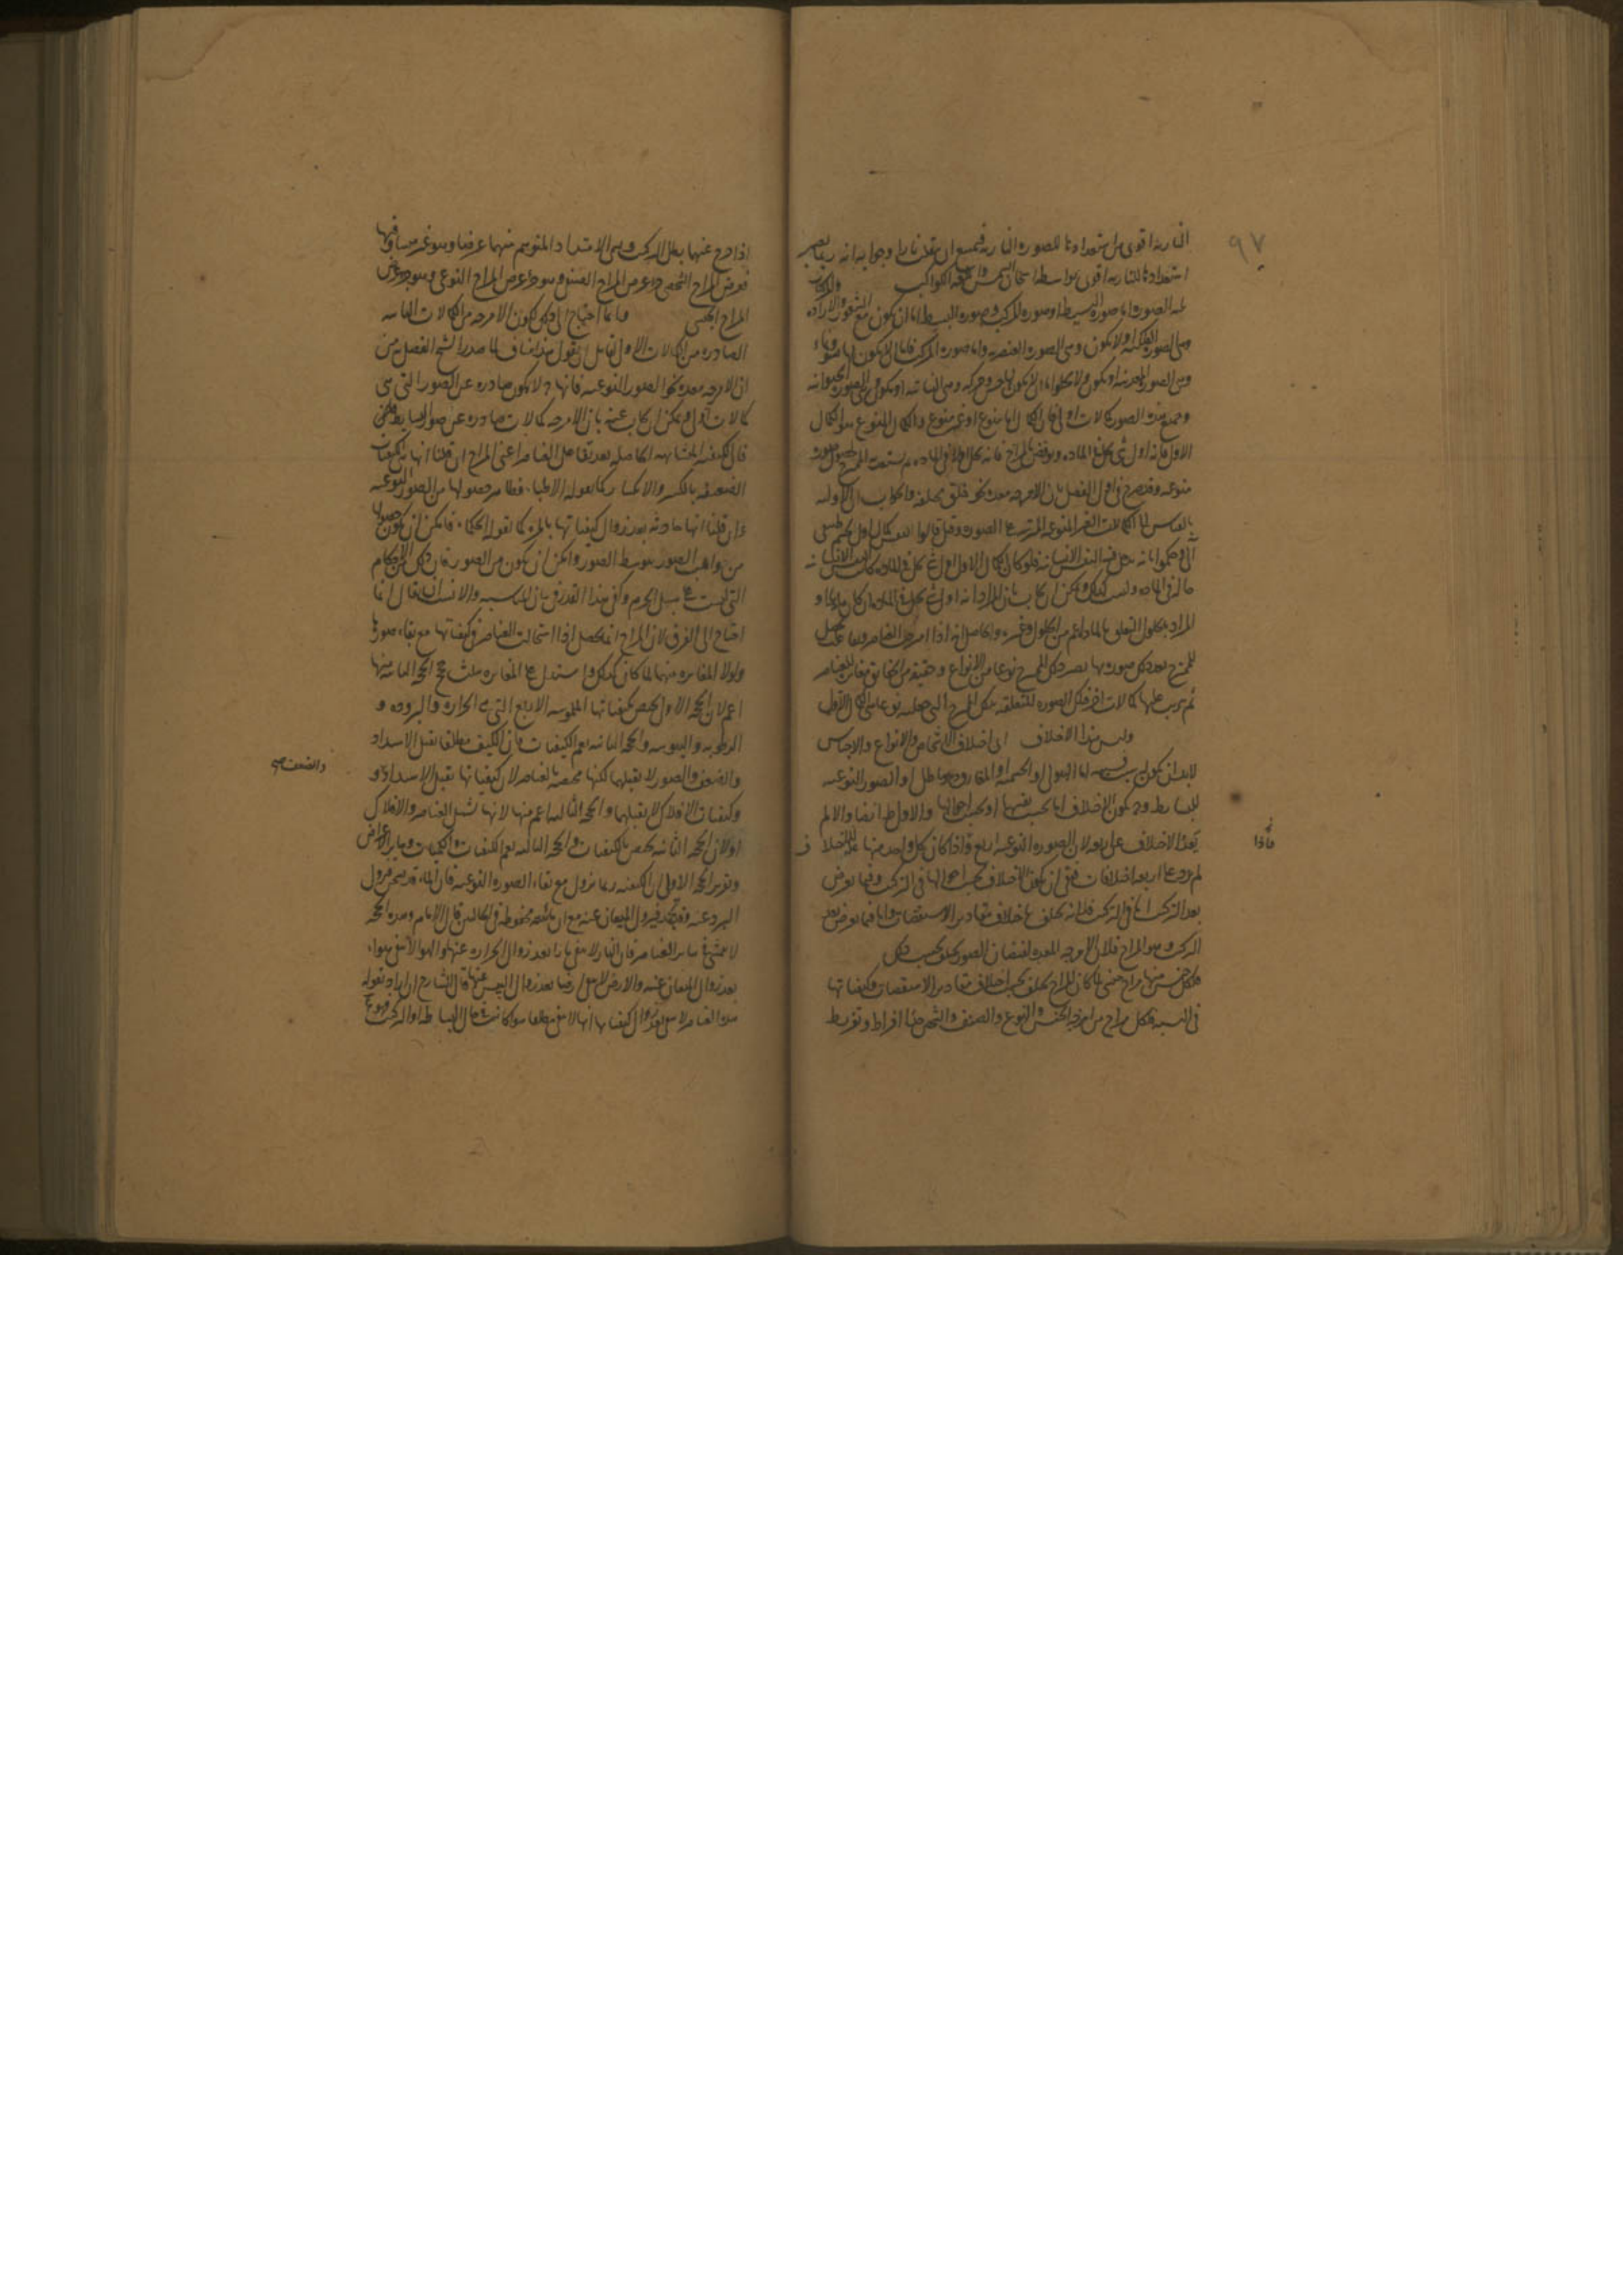 ٩٧
النارية اقوى من استعدادنا للصورة النارية فيمتنع ان ينقلب نارا وجوابه انه ربما يصير
استعدادنا للنارية اقوى بواسطة اسخان الشمس واشعة الكواكب
الصورة اما صورة البسيط او صورة المركب وصورة البسيط اما ان يكون مع الشعور والارادة
وهى الصورة الفلكية او لا يكون وهى الصورة العنصرية واما صورة المركب فاما ان لا يكون لها نشو ونماء
وهى الصور المعدنية او يكون ولا يخلو اما ان لا يكون لها حس وحركة وهى النباتية او يكون وهى الصور الحيوانية
وجميع هذه الصور كمالات اولى فان الكمال اما منوع او غير منوع والكمال المنوع هو الكمال
الاول فانه اول شى يحل فى المادة ونوقض بالمزاج فانه يحل اولا فى المادة ثم يستعد الممتزج لحصول صورة
منوعة وقد صرح فى اول الفصل بان الامزجة معدة نحو خلق مختلفة والجواب ان الاولية
بالقياس الى الكمالات الغير المنوعة المترتبة على الصورة وقيل قالوا النفس كمال اول لجسم طبيعى
آلى وحكموا بانه يدخل فيه النفس الانسانية فلو كان الكمال الاول اول شى يحل فى المادة كانت النفس الانسانية
حالة فى المادة وليس كذلك ويمكن ان يجاب بان المراد انه اول شى يحل فى المادة ان كان ماديا او
المراد بالحلول التعلق بالمادة اعم من الحلول وغيره والحاصل انه اذا امتزجت العناصر وتفاعلت يحصل
للممتزج بعد ذلك صورة بها يصير ذلك الممتزج نوعا من الانواع وحقيقة من الحقائق مغايرة للعناصر
ثم يترتب عليها كمالات اخر فتلك الصورة المتعلقة بذلك الممتزج التى جعلته نوعا هى الكمال الاول
وليس هذا الاختلاف اى اختلاف الاشخاص والانواع والاجناس
لا بد ان يكون لسبب فسببه اما الهيولى او الجسمية او المفارق وهو باطل او الصور النوعية
للبسايط وح يكون الاختلاف اما بحسب نفسها او بحسب احوالها والاول ط ايضا والا لم
يتعد الاختلاف على اربعة لان الصورة النوعية اربع فاذا كان كل واحد منها علة لاختلاف
لم يزد على اربعة اختلافات فبقى ان يكون الاختلاف بحسب احوالها فى التركيب وفيما يعرض
بعد التركيب اما فى التركيب فلانه يختلف باختلاف مقادير الاسطقسات واما فيما يعرض بعد
التركيب وهو المزاج فلان الامزجة المعدة لفيضان الصور يختلف بحسب ذلك
فلكل جنس منها مزاج جنسى لما كان المزاج يختلف بحسب اختلاف مقادير الاسطقسات وكيفياتها
فى النسبة فلكل مزاج من امزجة الجنس والنوع والصنف والشخص حدا افراط وتفريط
فاذا
اذا خرج عنها بطل التركيب وسمى الامتداد المتوسم منهما عرضا وهو غير مساو فيها
فعرض المزاج الشخصى جزء عرض المزاج الصنفى وهو جزء عرض المزاج النوعى وهو جزء عرض
المزاج الجنسى وانما احتاج الى ذلك لكون الامزجة من الكمالات الثانية
الصادرة من الكمالات الاول لقائل ان يقول هذا مناف لما صدر الشيخ الفصل به من
ان الامزجة معدة نحو الصور النوعية فانها ح لا يكون صادرة عن الصور التى هى
كمالات اولى ويمكن ان يجاب عنه بان الامزجة كمالات صادرة عن صور البسايط
فان الكيفية المتشابهة الحاصلة بعد تفاعل العناصر اعنى المزاج ان قلنا انها تلك الكيفيات
الضعيفة بالكسر والانكسار كما يقوله الاطباء فظاهر حصولها من الصور النوعية
وان قلنا انها حادثة بعد زوال كيفياتها بالمرة كما تقوله الحكماء فامكن ان يكون حصولها
من واهب الصور بتوسط الصور وامكن ان يكون من الصور فان ذلك من الاحكام
التى ليست على سبيل الجزم وكفى هذا القدر فى بيان المناسبة والانسب ان يقال انما
احتاج الى الفرق لان المزاج انما يحصل اذا استحالت العناصر فى كيفياتها مع بقاء صورها
ولولا المغايرة بينهما لما كان كذلك واستدل على المغايرة بثلث حجج الحجة الثانية منها
اعم لان الحجة الاولى يختص بكيفياتها الملموسة الاربع التى هى الحرارة والبرودة و
الرطوبة واليبوسة والحجة الثانية يعم الكيفيات فان الكيف مطلقا يقبل الاشتداد
والضعف والصور لا يقبلهما لكنها مختصة بالعناصر لان كيفياتها يقبل الاشتداد و
وكيفيات الافلاك لا يقبلهما والحجة الثالثة اعم منها لانها تشمل العناصر والافلاك
او لان الحجة الثانية يختص بالكيفيات والحجة الثالثة يعم الكيفيات والكميات وساير الاعراض
وتقرير الحجة الاولى ان الكيفية ربما يزول مع بقاء الصورة النوعية فان الماء قد يسخن فيزول
البرد عنه وقد يجمد فيزول الميعان عنه مع ان مائيته محفوظة فى الحالين قال الامام وهذه الحجة
لا تتمشى فى ساير العناصر فان النار لا تبقى نارا بعد زوال الحرارة عنها والهواء لا يبقى هواء
بعد زوال الميعان عنه والارض لا يبقى ارضا بعد زوال اليبس عنها قال الشارح ان اراد بقوله
هذه العناصر لا يبقى بعد زوال كيفياتها انها لا تبقى مطلقا سواء كانت فى حال البساطة او التركيب فهو ممنوع
والضعف صح